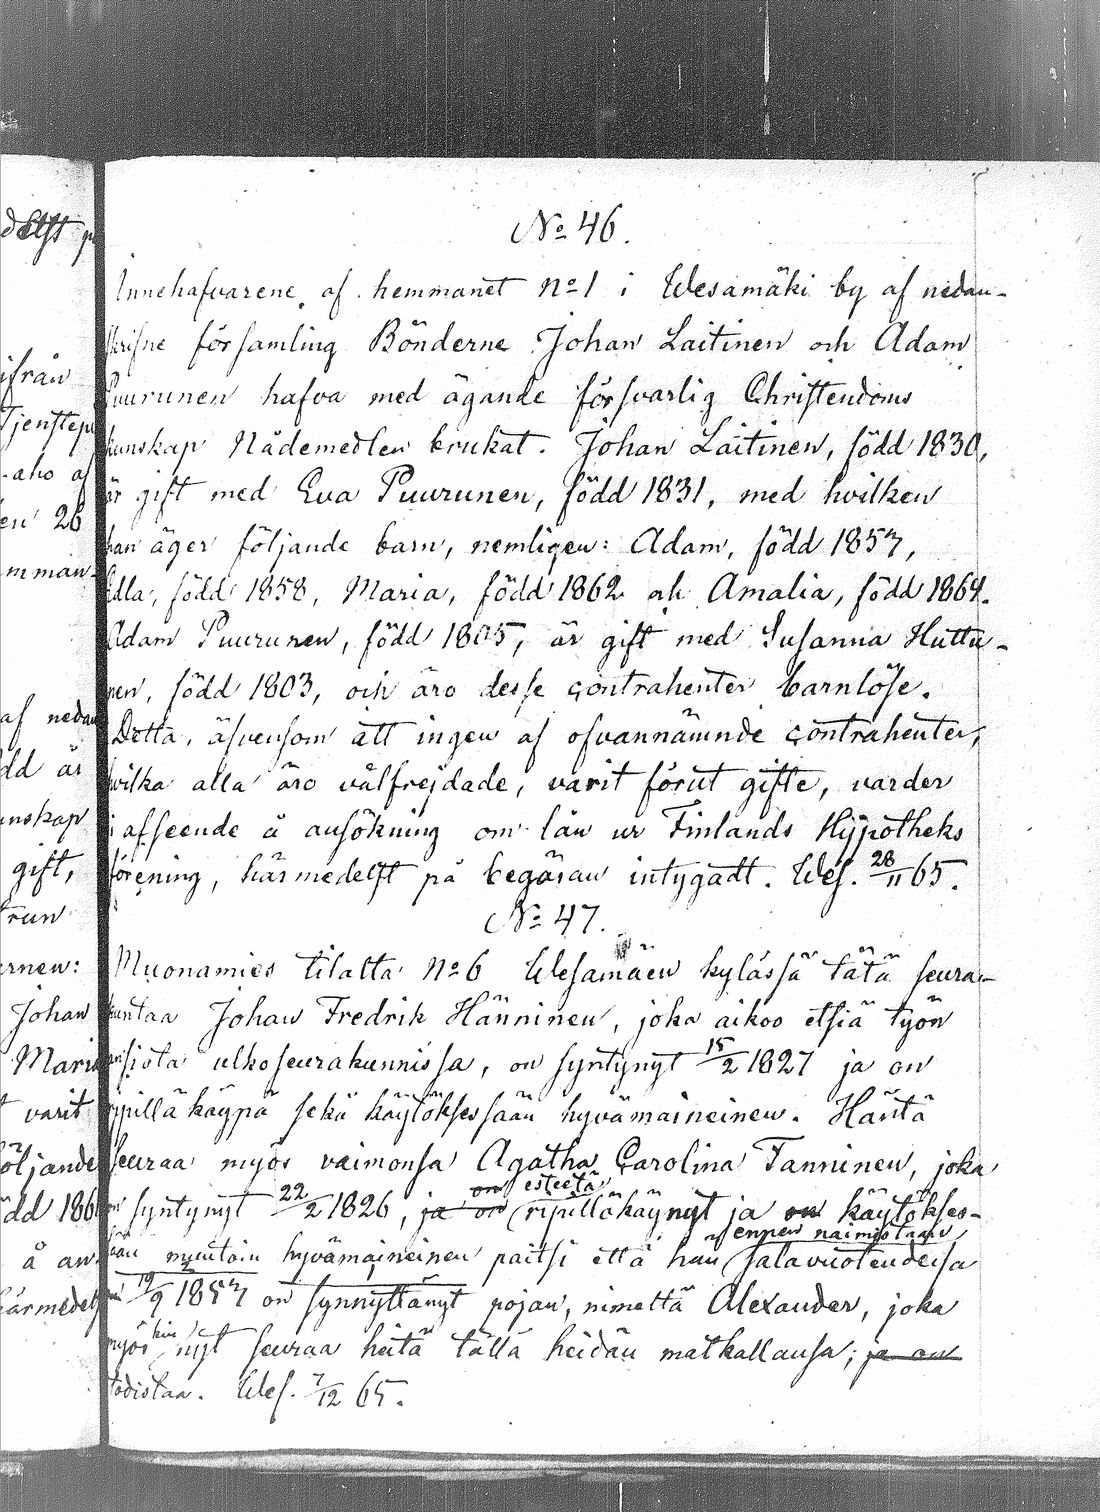 delst p
No 46.
Innehafvarene af hemmanet No 1 i Wesamäki by af nedan-
skrifne församling Bönderne Johan Laitinen och Adam
ifrån
Puurunen hafva med ägande försvarlig Christendoms
Tjenstep
kunskap Nådemedlen brukat. Johan Laitinen, född 1830,
-aho af
är gift med Eva Puurunen, född 1831, med hvilken
en 26
han äger följande barn, nemligen: Adam, född 1857,
mman-
Edla, född 1858, Maria, född 1862 och Amalia, född 1864.
Adam Puurunen, född 1805, är gift med Susanna Huttu-
nen, född 1803, och äro desse contrahenter barnlöse.
af nedan
Detta, äfvensom att ingen af ofvannämnde contrahenter,
dd är
hvilka alla äro välfrejdade, varit förut gifte, varder
unskap
i afseende å ansökning om lån ur Finlands Hypotheks
gift,
förening, härmedelst på begäran intygadt. Wes. 28/11 65.
No 47.
Muonamies tilalta No 6 Wesamäen kylässä tätä seura-
rnen:
kuntaa Johan Fredrik Hänninen, joka aikoo etsiä työn
Johan
ansiota ulkoseurakunnissa, on syntynyt 15/2 1827 ja on
Maria
ripilläkäypä sekä käytöksessään hyvämaineinen. Häntä
varit
seuraa myös vaimonsa Agatha Carolina Tanninen, joka
öljande
on esteetä
on syntynyt 22/2 1826, ja on ripilläkäynyt ja on käytökses-
dd 186
ennen naimistaan
sään muutoin hyvämaineinen paitsi että hän salavuoteudessa
å an-
19/9 1857 on synnyttänyt pojan, nimeltä Alexander, joka
härmedelst
kin
myös nyt seuraa heitä tällä heidän matkallansa; ja on
todistaa. Wes. 7/12 65.